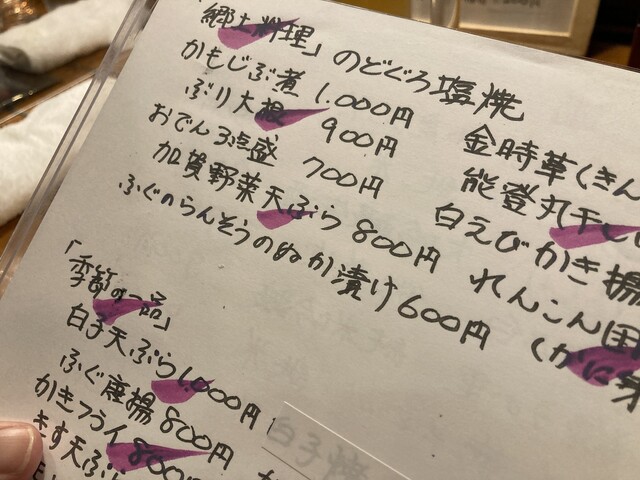 「郷土料理」のどぐろ塩焼
かもじぶ煮 1.000円 金時草(きん
ぶり大根 900円 能登丸干し
おでん3点盛 700円 白えびかき揚
加賀野菜天ぷら 800円 れんこん団
ふぐのらんそうのぬか漬け600円 (かに
「季節の一品」
白子天ぷら1.000円
ふぐ唐揚800円
かきフライ800円
きす天ぷ
白子焼